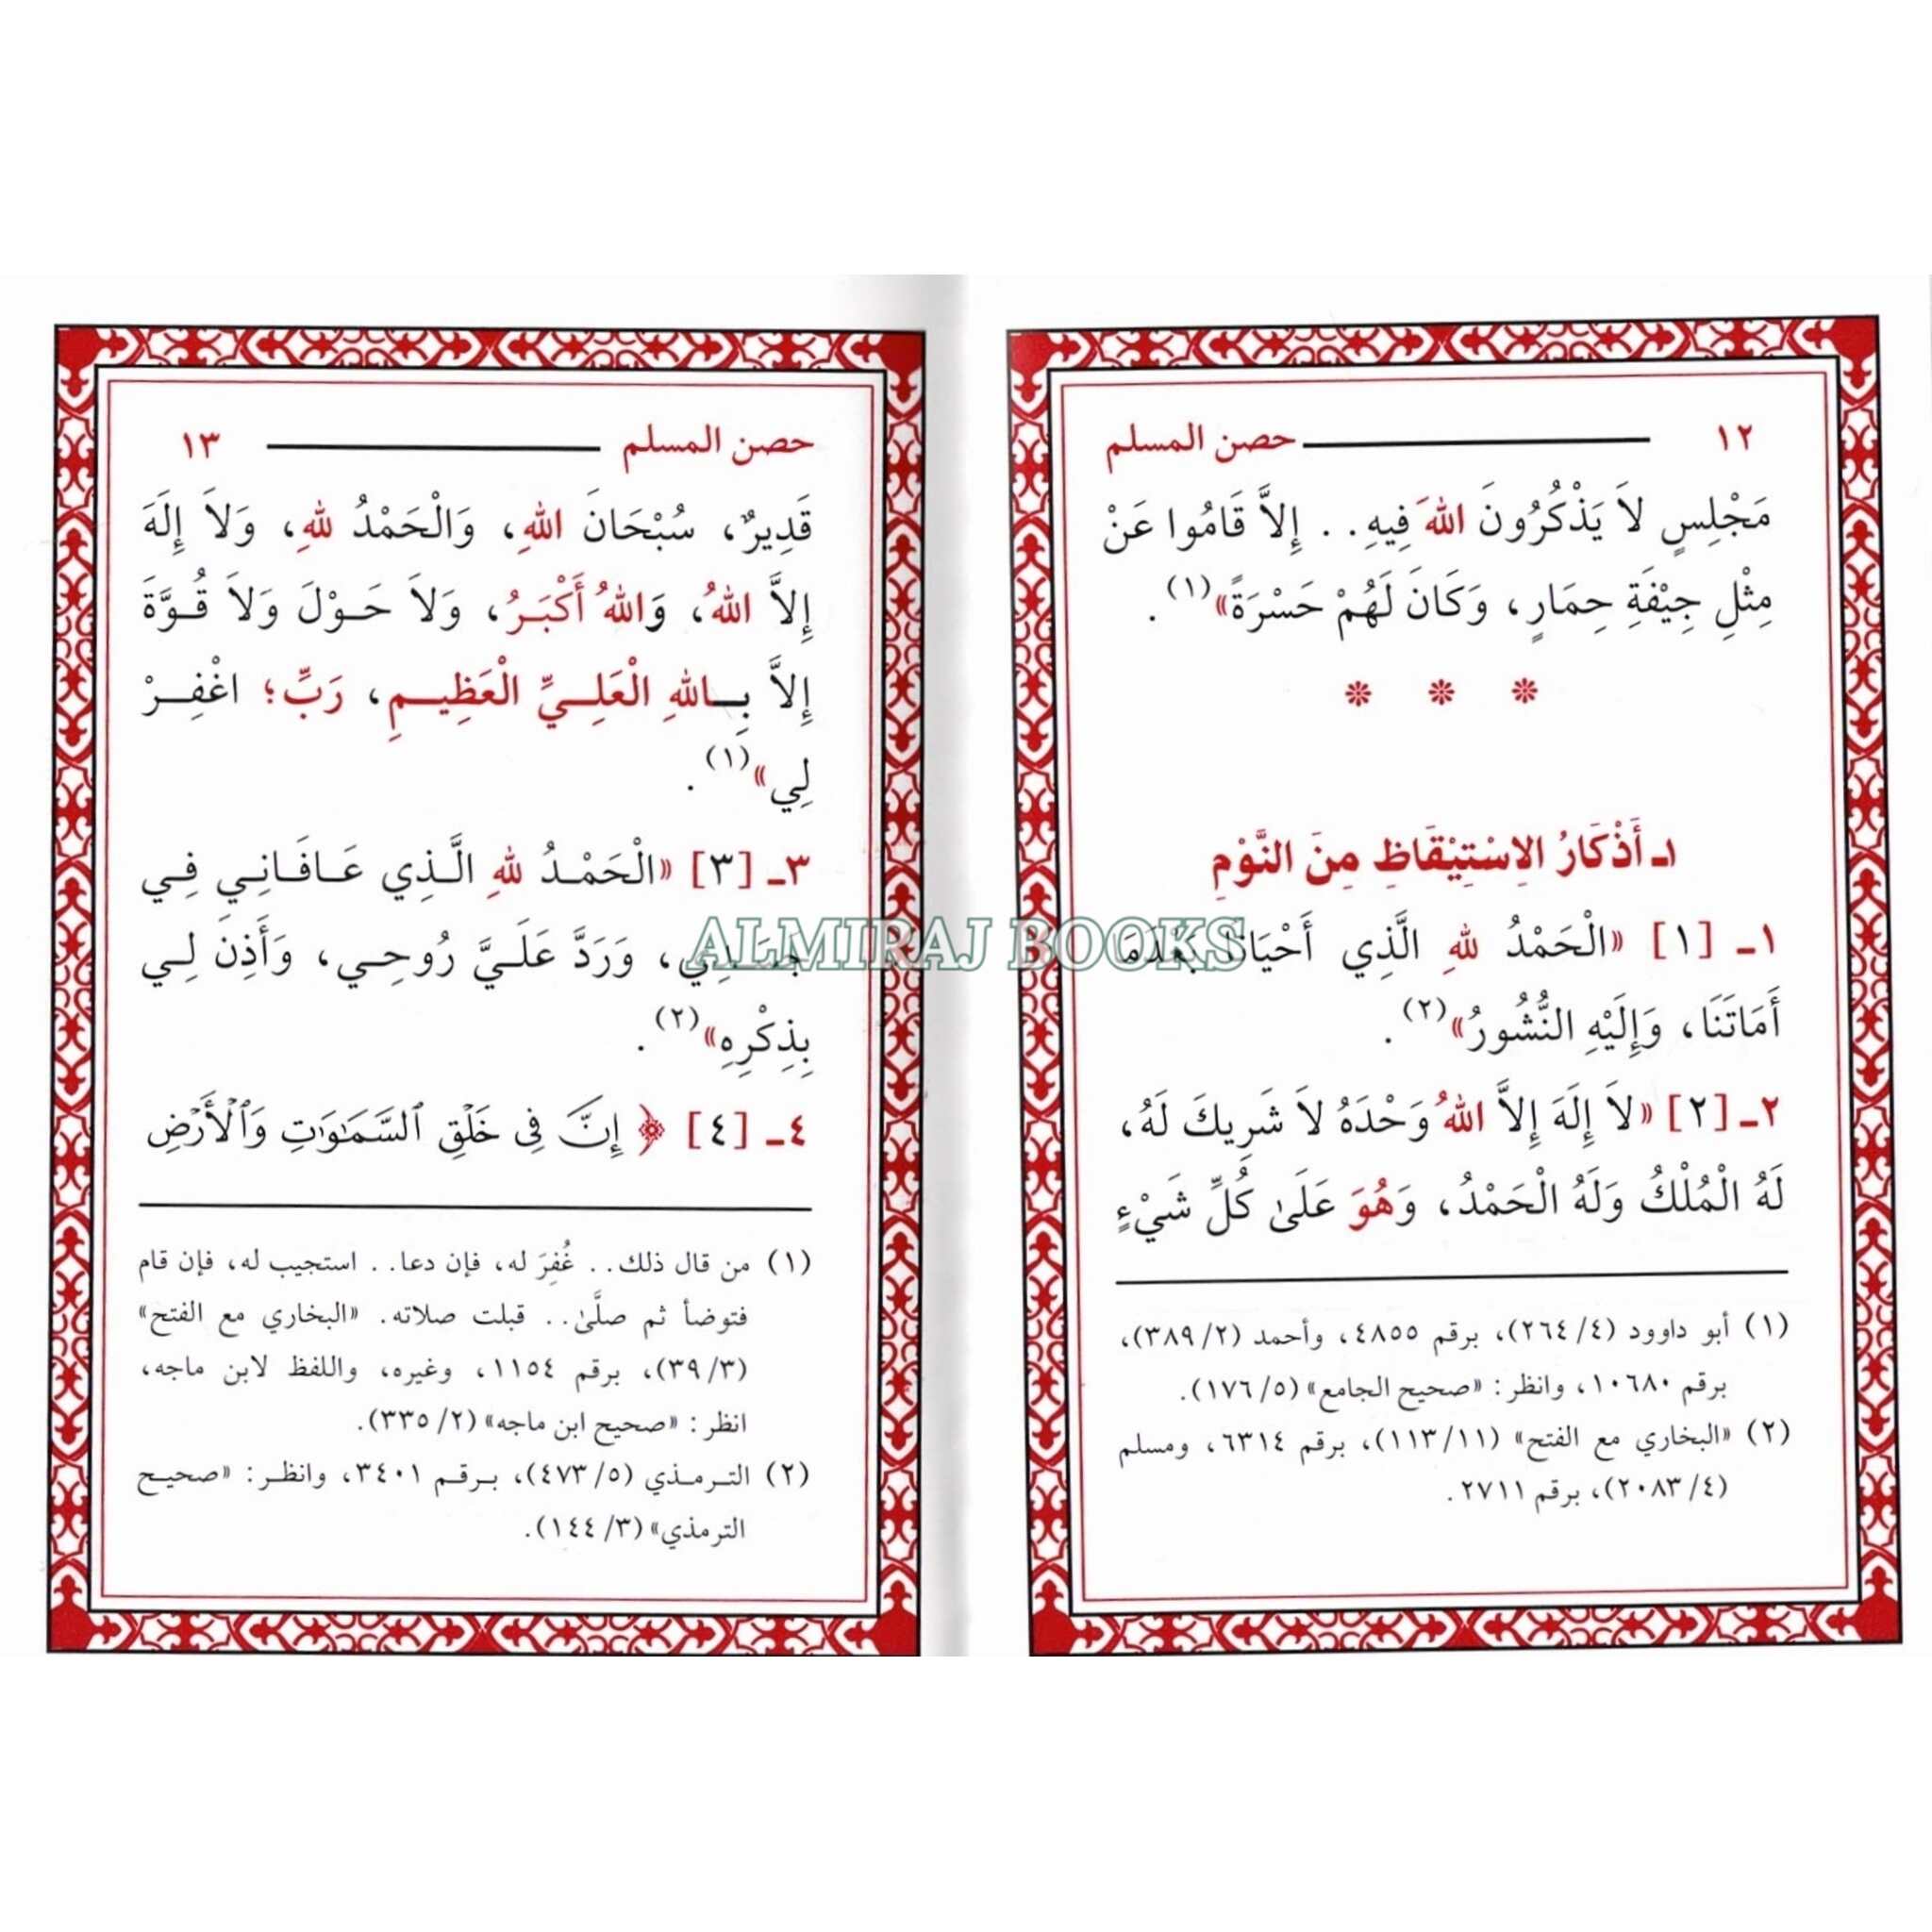 ١٢ حصن المسلم
مَجْلِسٍ لاَ يَذْكُرُونَ اللهَ فِيهِ.. إِلاَّ قَامُوا عَنْ
مِثْلِ جِيْفَةِ حِمَارٍ، وَكَانَ لَهُمْ حَسْرَةً»(١).
١ـ أَذْكَارُ الِاسْتِيْقَاظِ مِنَ النَّوْمِ
١ـ [١] «الْحَمْدُ للهِ الَّذِي أَحْيَانَا بَعْدَمَا
أَمَاتَنَا، وَإِلَيْهِ النُّشُورُ»(٢).
٢ـ [٢] «لاَ إِلَهَ إِلاَّ اللهُ وَحْدَهُ لاَ شَرِيكَ لَهُ،
لَهُ الْمُلْكُ وَلَهُ الْحَمْدُ، وَهُوَ عَلَىٰ كُلِّ شَيْءٍ
(١) أبو داوود (٤/ ٢٦٤)، برقم ٤٨٥٥، وأحمد (٢/ ٣٨٩)،
برقم ١٠٦٨٠، وانظر: «صحيح الجامع» (٥/ ١٧٦).
(٢) «البخاري مع الفتح» (١١/ ١١٣)، برقم ٦٣١٤، ومسلم
(٤/ ٢٠٨٣)، برقم ٢٧١١.
حصن المسلم ١٣
قَدِيرٌ، سُبْحَانَ اللهِ، وَالْحَمْدُ للهِ، وَلاَ إِلَهَ
إِلاَّ اللهُ، وَاللهُ أَكْبَرُ، وَلاَ حَوْلَ وَلاَ قُوَّةَ
إِلاَّ بِاللهِ الْعَلِيِّ الْعَظِيمِ، رَبِّ؛ اغْفِرْ
لِي»(١).
٣ـ [٣] «الْحَمْدُ للهِ الَّذِي عَافَانِي فِي
جَسَدِي، وَرَدَّ عَلَيَّ رُوحِي، وَأَذِنَ لِي
بِذِكْرِهِ»(٢).
٤ـ [٤] ﴿ إِنَّ فِي خَلْقِ ٱلسَّمَٰوَٰتِ وَٱلْأَرْضِ
(١) من قال ذلك.. غُفِرَ له، فإن دعا.. استجيب له، فإن قام
فتوضأ ثم صلَّىٰ.. قبلت صلاته. «البخاري مع الفتح»
(٣/ ٣٩)، برقم ١١٥٤، وغيره، واللفظ لابن ماجه،
انظر: «صحيح ابن ماجه» (٢/ ٣٣٥).
(٢) الترمذي (٥/ ٤٧٣)، برقم ٣٤٠١، وانظر: «صحيح
الترمذي» (٣/ ١٤٤).
ALMIRAJ BOOKS